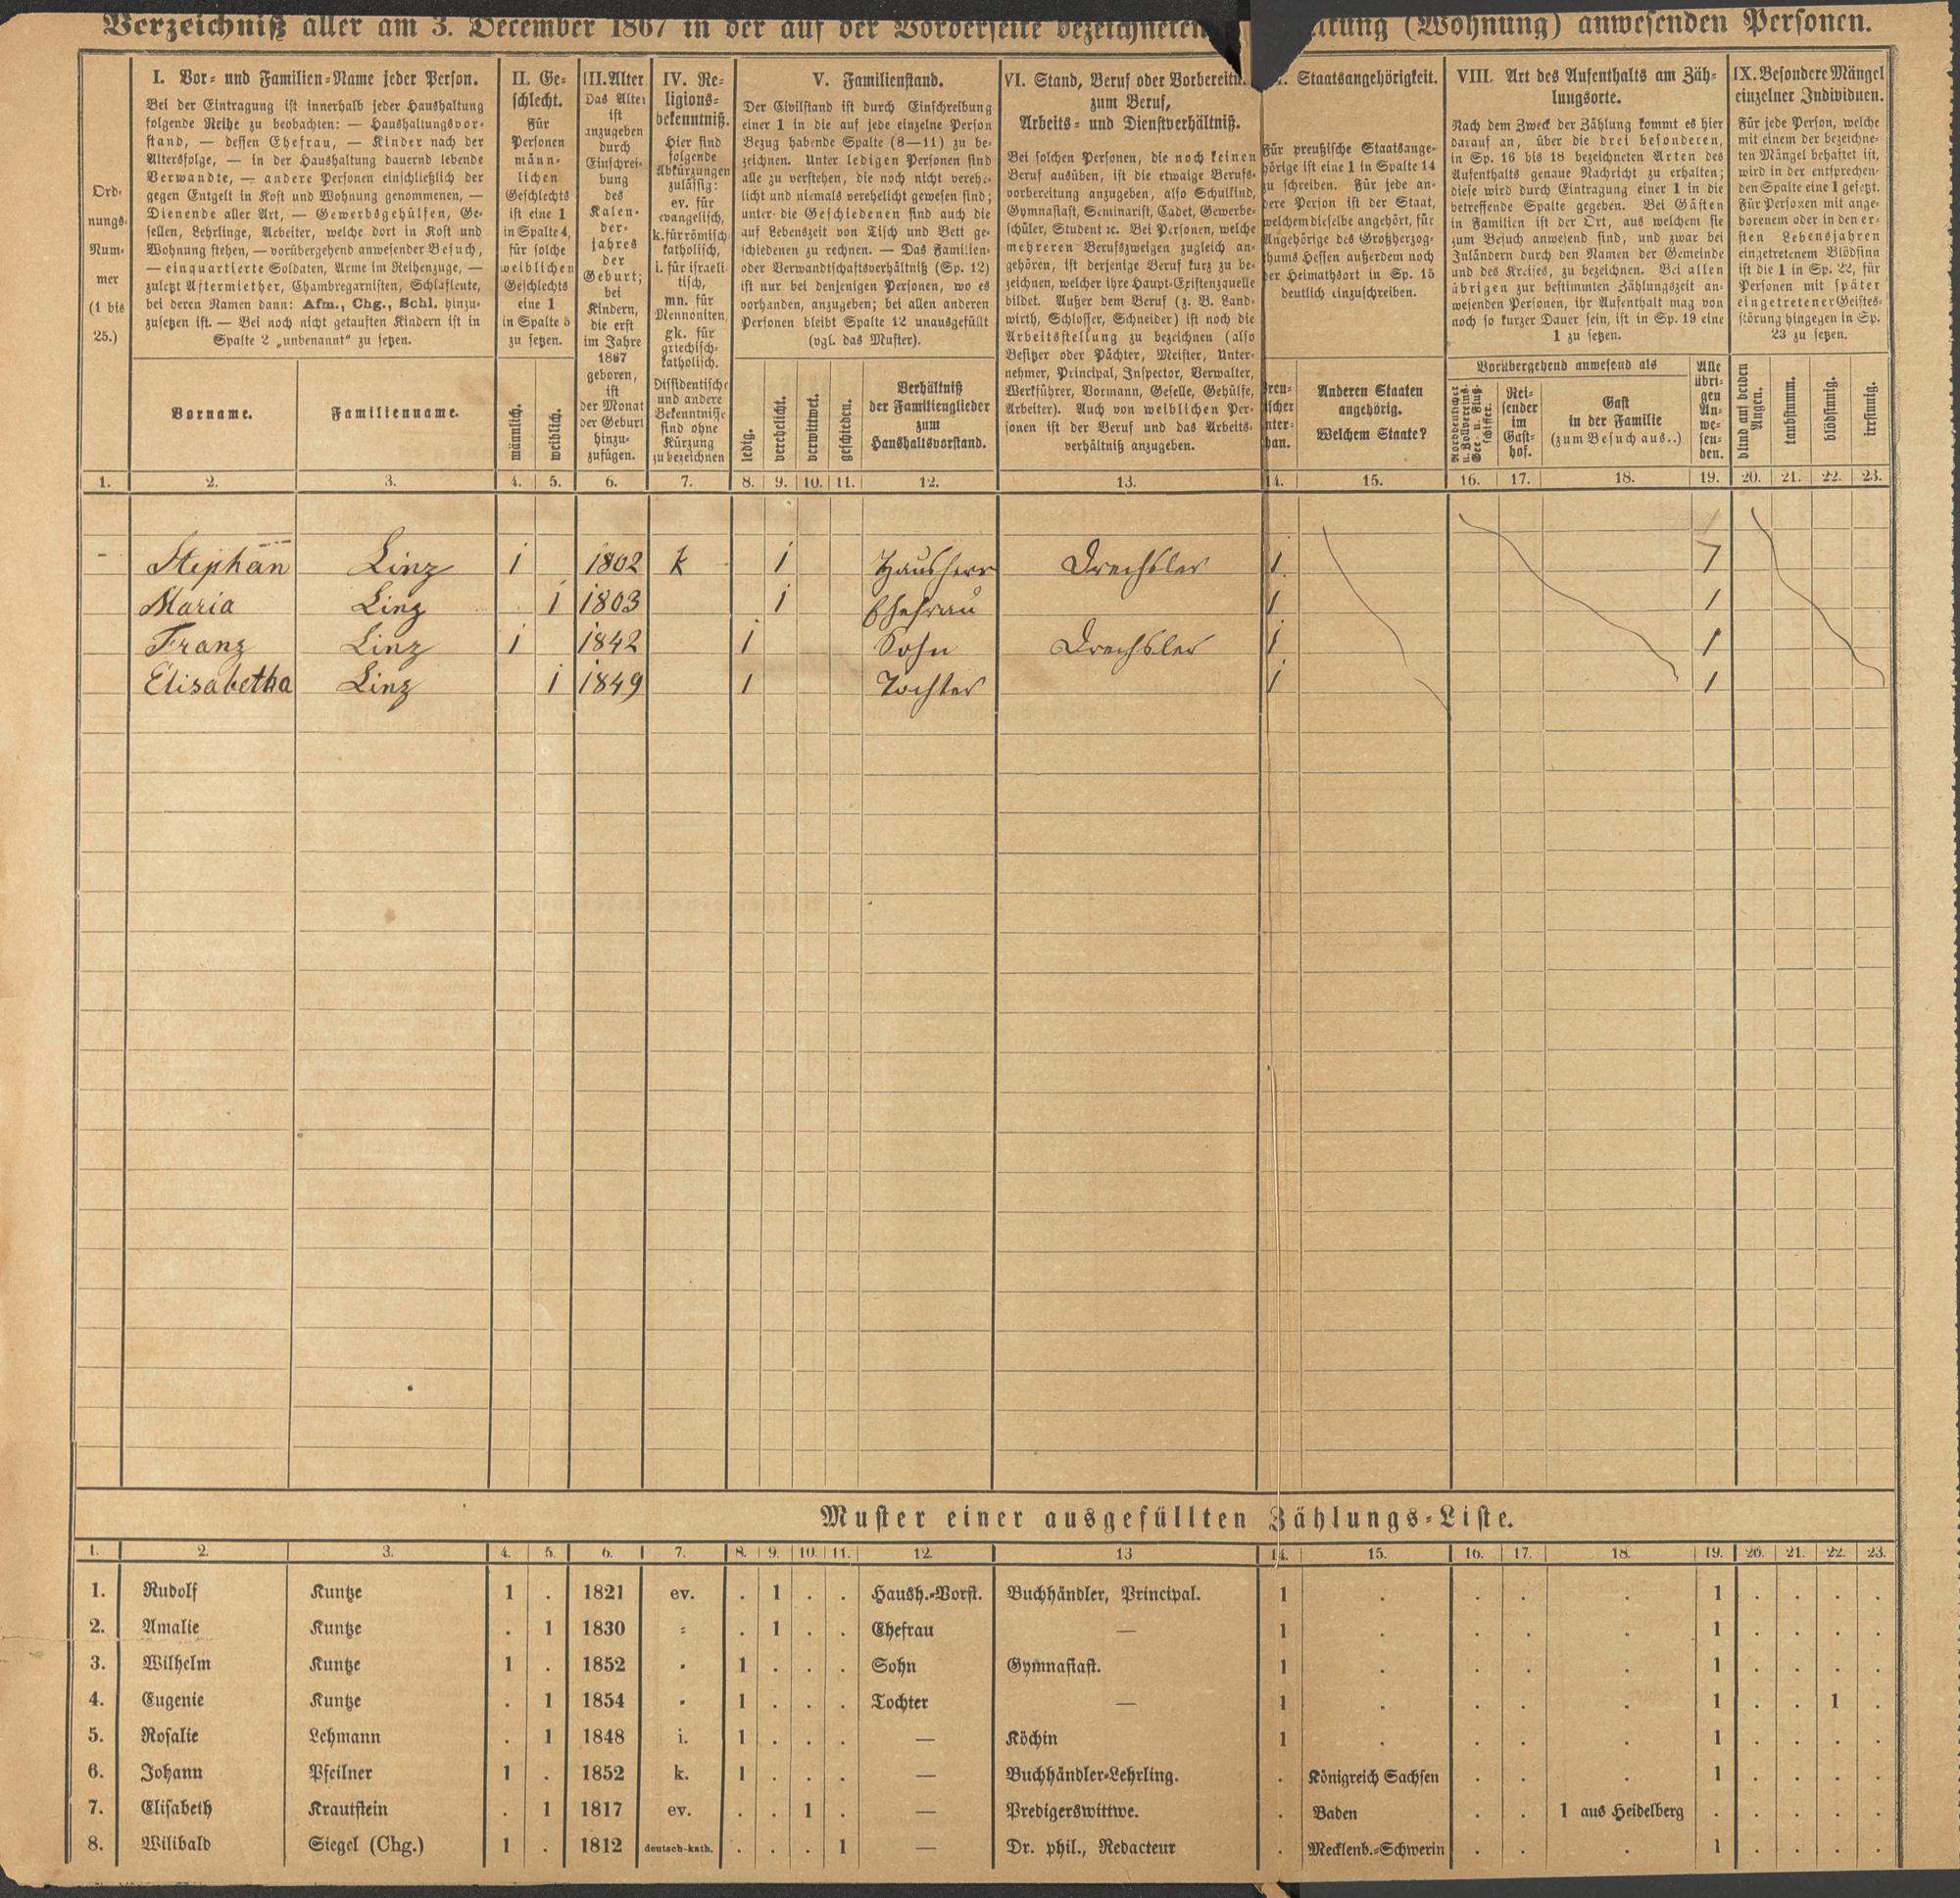 Verzeichniß aller am 3. December 1867 in der auf der Vorderseite bezeichneten ltung (Wohnung) anwesenden Personen.
Ord-
nungs-
Num-
mer
(1 bis
25.)
I. Vor- und Familien-Name jeder Person.
Bei der Eintragung ist innerhalb jeder Haushaltung
folgende Reihe zu beobachten: — Haushaltungsvor-
stand, — dessen Ehefrau, — Kinder nach der
Altersfolge, — in der Haushaltung dauernd lebende
Verwandte, — andere Personen einschließlich der
gegen Entgelt in Kost und Wohnung genommenen, —
Dienende aller Art, — Gewerbsgehülfen, Ge-
sellen, Lehrlinge, Arbeiter, welche dort in Kost und
Wohnung stehen, — vorübergehend anwesender Besuch,
— einquartierte Soldaten, Arme im Reihenzuge, —
zuletzt Aftermiether, Chambregarnisten, Schlafleute,
bei deren Namen dann: Afm., Chg., Schl. hinzu-
zusetzen ist. — Bei noch nicht getauften Kindern ist in
Spalte 2 „unbenannt“ zu setzen.
Vorname.
Familienname.
II. Ge-
schlecht.
Für
Personen
männ-
lichen
Geschlechts
ist eine 1
in Spalte 4,
für solche
weiblichen
Geschlechts
eine 1
in Spalte 5
zu setzen.
männlich.
weiblich.
III. Alter.
Das Alter
ist
anzugeben
durch
Einschrei-
bung
des
Kalen-
der-
jahres
der
Geburt;
bei
Kindern,
die erst
im Jahre
1867
geboren,
ist
der Monat
der Geburt
hinzu-
zufügen.
IV. Re-
ligions-
bekenntniß.
Hier sind
folgende
Abkürzungen
zulässig:
ev. für
evangelisch,
k. für römisch-
katholisch,
i. für israeli-
tisch,
mn. für
Mennoniten,
gk. für
griechisch-
katholisch.
Dissidentische
und andere
Bekenntnisse
sind ohne
Kürzung
zu bezeichnen
V. Familienstand.
Der Civilstand ist durch Einschreibung
einer 1 in die auf jede einzelne Person
Bezug habende Spalte (8—11) zu be-
zeichnen. Unter ledigen Personen sind
alle zu verstehen, die noch nicht verehe-
licht und niemals verehelicht gewesen sind;
unter die Geschiedenen sind auch die
auf Lebenszeit von Tisch und Bett ge-
schiedenen zu rechnen. — Das Familien-
oder Verwandtschaftsverhältniß (Sp. 12)
ist nur bei denjenigen Personen, wo es
vorhanden, anzugeben; bei allen anderen
Personen bleibt Spalte 12 unausgefüllt
(vgl. das Muster).
ledig.
verehelicht.
verwittwet.
geschieden.
Verhältniß
der Familienglieder
zum
Haushaltsvorstand.
VI. Stand, Beruf oder Vorbereitu
zum Beruf,
Arbeits- und Dienstverhältniß.
Bei solchen Personen, die noch keinen
Beruf ausüben, ist die etwaige Berufs-
vorbereitung anzugeben, also Schulkind,
Gymnasiast, Seminarist, Cadet, Gewerbe-
schüler, Student ꝛc. Bei Personen, welche
mehreren Berufszweigen zugleich an-
gehören, ist derjenige Beruf kurz zu be-
zeichnen, welcher ihre Haupt-Existenzquelle
bildet. Außer dem Beruf (z. B. Land-
wirth, Schlosser, Schneider) ist noch die
Arbeitsstellung zu bezeichnen (also
Besitzer oder Pächter, Meister, Unter-
nehmer, Principal, Inspector, Verwalter,
Werkführer, Vormann, Geselle, Gehülfe,
Arbeiter). Auch von weiblichen Per-
sonen ist der Beruf und das Arbeits-
verhältniß anzugeben.
. Staatsangehörigkeit.
Für preußische Staatsange-
hörige ist eine 1 in Spalte 14
zu schreiben. Für jede an-
dere Person ist der Staat,
welchem dieselbe angehört, für
Angehörige des Großherzog-
thums Hessen außerdem noch
der Heimathsort in Sp. 15
deutlich einzuschreiben.
reu-
ischer
nter-
han.
Anderen Staaten
angehörig.
Welchem Staate?
VIII. Art des Aufenthalts am Zäh-
lungsorte.
Nach dem Zweck der Zählung kommt es hier
darauf an, über die drei besonderen,
in Sp. 16 bis 18 bezeichneten Arten des
Aufenthalts genaue Nachricht zu erhalten;
diese wird durch Eintragung einer 1 in die
betreffende Spalte gegeben. Bei Gästen
in Familien ist der Ort, aus welchem sie
zum Besuch anwesend sind, und zwar bei
Inländern durch den Namen der Gemeinde
und des Kreises, zu bezeichnen. Bei allen
übrigen zur bestimmten Zählungszeit an-
wesenden Personen, ihr Aufenthalt mag von
noch so kurzer Dauer sein, ist in Sp. 19 eine
1 zu setzen.
Vorübergehend anwesend als
Norddeutscher
u. Zollvereins-
See- u. Fluß-
schiffer.
Rei-
sender
im
Gast-
hof.
Gast
in der Familie
(zum Besuch aus..)
Alle
übri-
gen
An-
we-
sen-
den.
IX. Besondere Mängel
einzelner Individuen.
Für jede Person, welche
mit einem der bezeichne-
ten Mängel behaftet ist,
wird in der entsprechen-
den Spalte eine 1 gesetzt.
Für Personen mit ange-
borenem oder in den er-
sten Lebensjahren
eingetretenem Blödsinn
ist die 1 in Sp. 22, für
Personen mit später
eingetretener Geistes-
störung hingegen in Sp.
23 zu setzen.
blind auf beiden
Augen.
taubstumm.
blödsinnig.
irrsinnig.
1. 2. 3. 4. 5. 6. 7. 8. 9. 10. 11. 12. 13. 14. 15. 16. 17. 18. 19. 20. 21. 22. 23.
Stephan Linz 1 1802 k 1 Hausherr Drechsler 1 1
Maria Linz 1 1803 1 Ehefrau 1 1
Franz Linz 1 1842 1 Sohn Drechsler 1 1
Elisabetha Linz 1 1849 1 Tochter 1 1
Muster einer ausgefüllten Zählungs-Liste.
1. 2. 3. 4. 5. 6. 7. 8. 9. 10. 11. 12. 13 14. 15. 16. 17. 18. 19. 20. 21. 22. 23.
1. Rudolf Kuntze 1 . 1821 ev. . 1 . . Haush.-Vorst. Buchhändler, Principal. 1 . . . . 1 . . . .
2. Amalie Kuntze . 1 1830 = . 1 . . Ehefrau — 1 . . . . 1 . . . .
3. Wilhelm Kuntze 1 . 1852 " 1 . . . Sohn Gymnasiast. 1 . . . . 1 . . . .
4. Eugenie Kuntze . 1 1854 " 1 . . . Tochter — 1 . . . . 1 . . 1 .
5. Rosalie Lehmann . 1 1848 i. 1 . . . — Köchin 1 . . . . 1 . . . .
6. Johann Pfeilner 1 . 1852 k. 1 . . . — Buchhändler-Lehrling. . Königreich Sachsen . . . 1 . . . .
7. Elisabeth Krautstein . 1 1817 ev. . . 1 . — Predigerswittwe. . Baden . . 1 aus Heidelberg . . . . .
8. Wilibald Siegel (Chg.) 1 . 1812 deutsch-kath. . . . 1 — Dr. phil., Redacteur . Mecklenb.-Schwerin . . . 1 . . . .